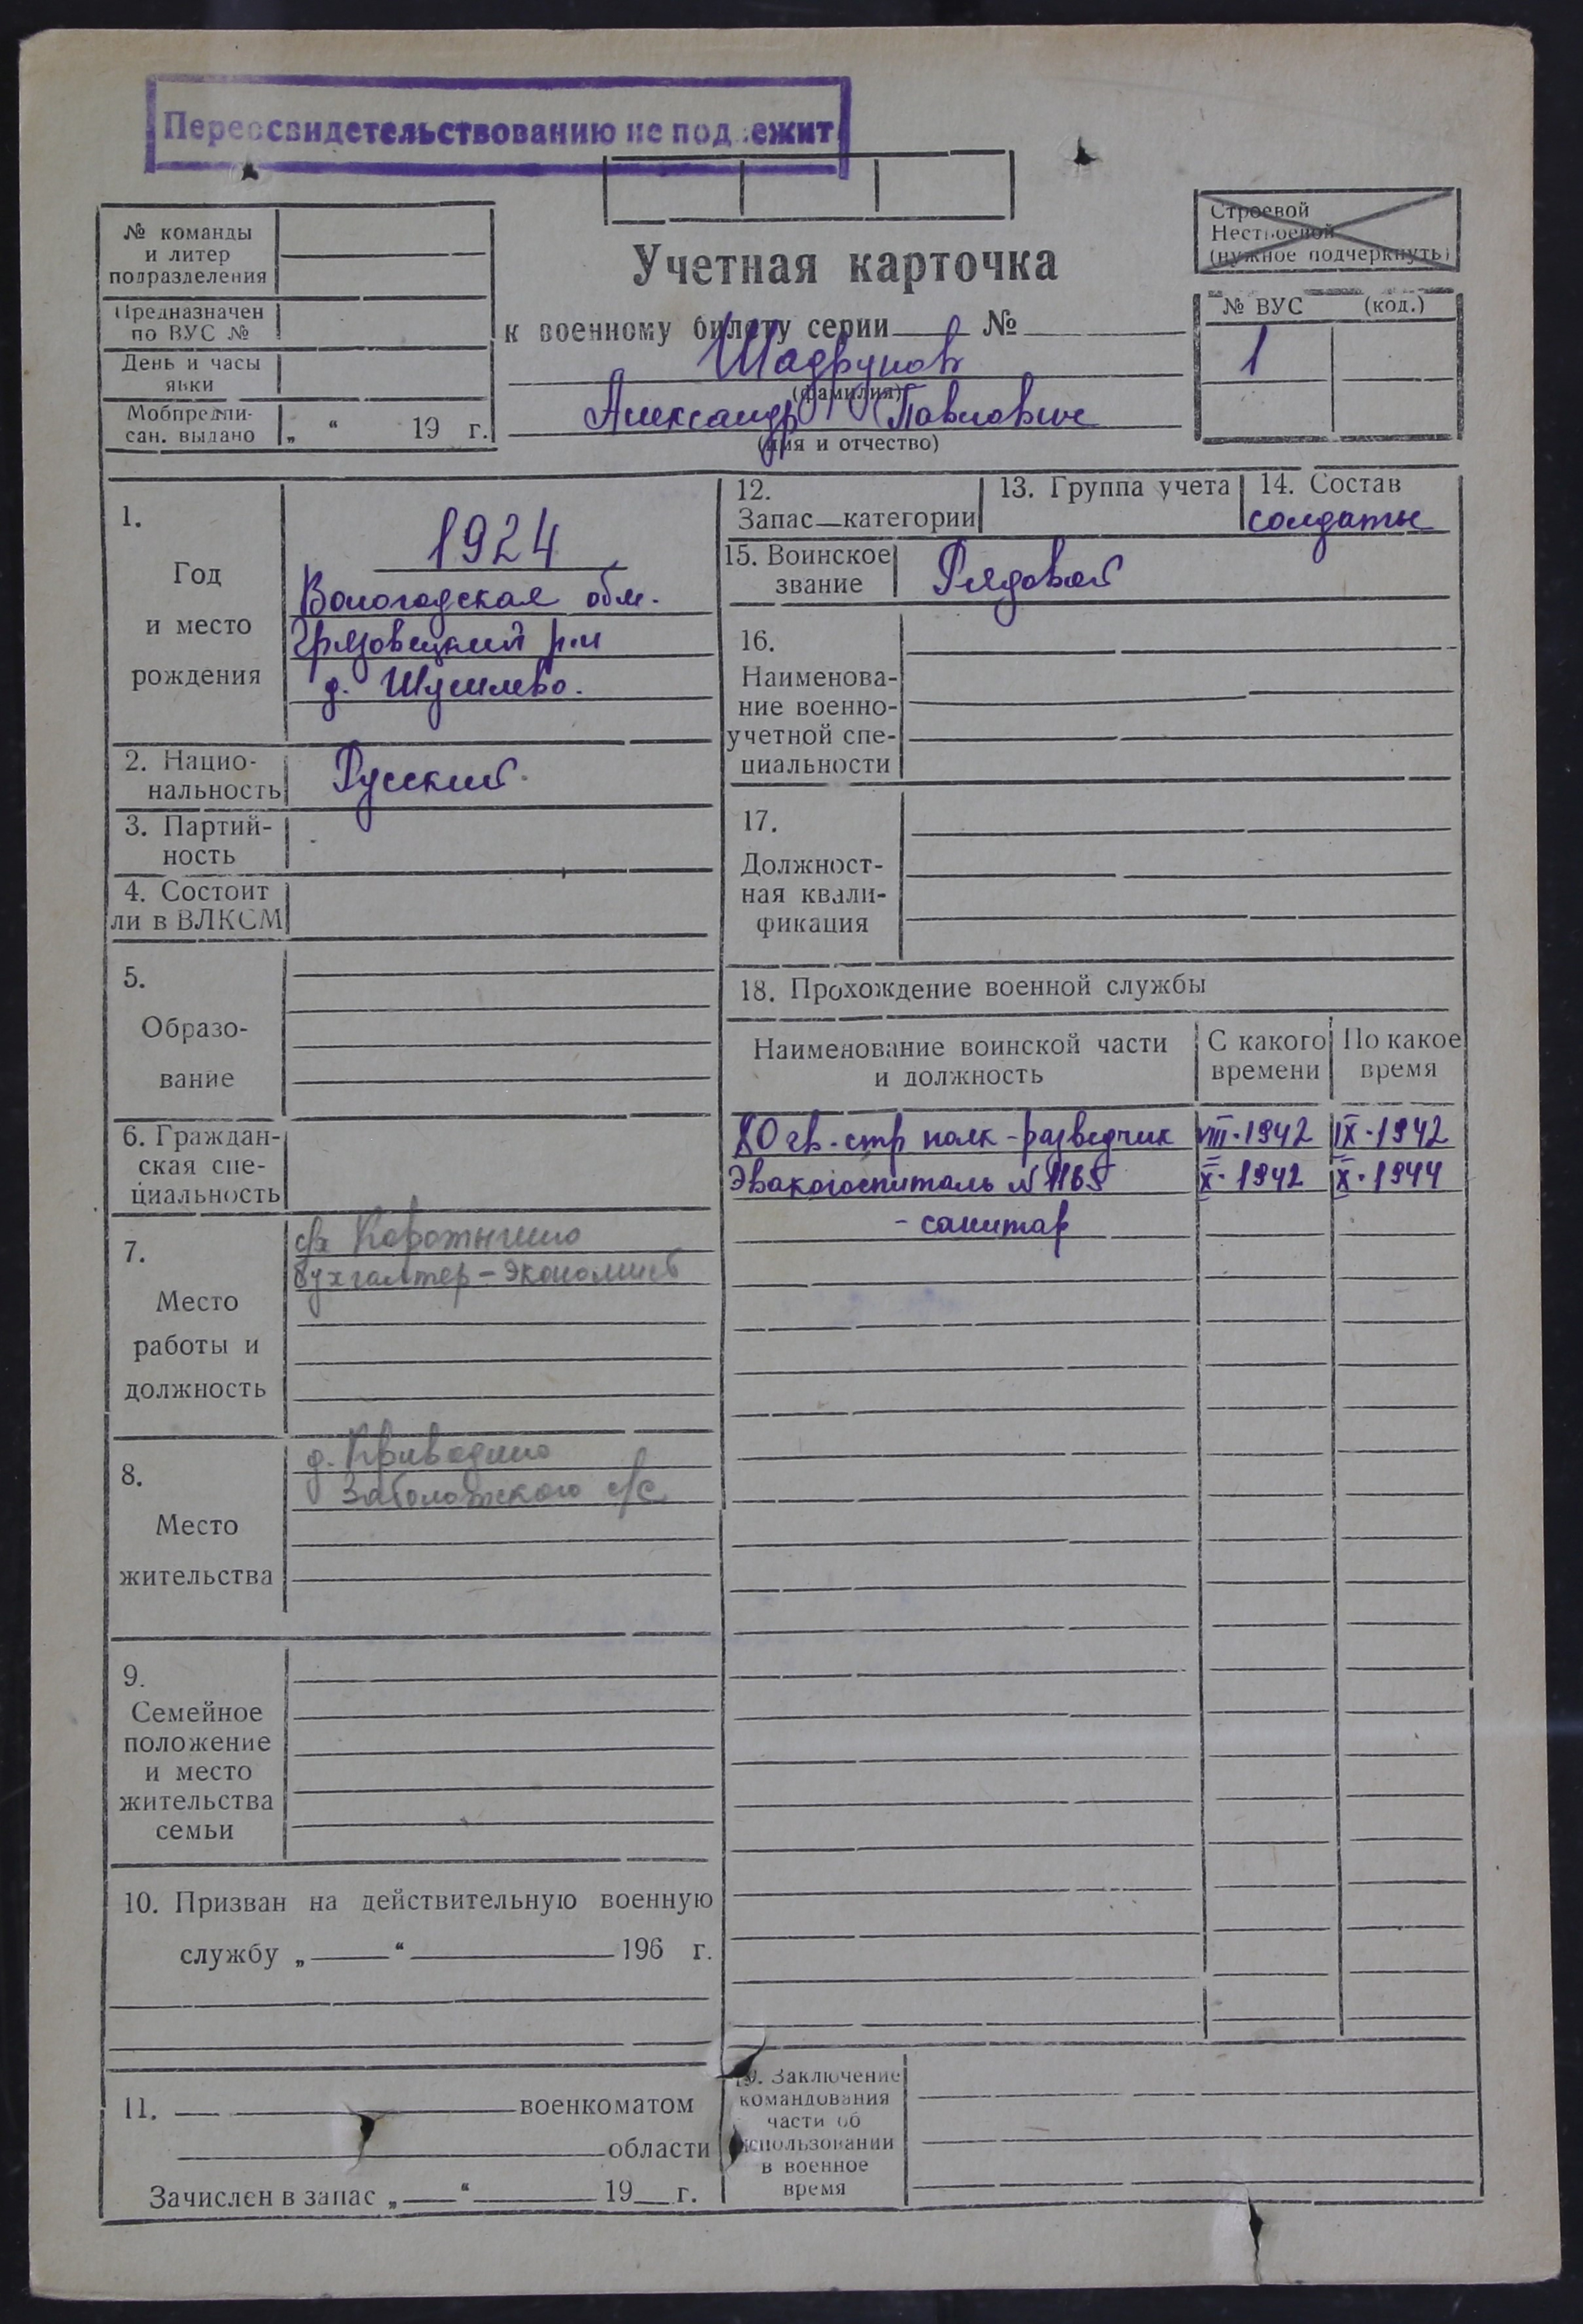 Переосвидетельствованию не подлежит
№ команды
и литер
подразделения
Предназначен
по ВУС №
День и часы
явки
Мобпредпи-
сан. выдано „ “ 19 г.
Учетная карточка
к военному билету серии № 
Шадрунов
(фамилия)
Александр Павлович
(имя и отчество)
Строевой
Нестроевой
(нужное подчеркнуть)
№ ВУС (код.)
1
1.
Год
и место
рождения
1924
Вологодская обл.
Грязовецкий р-н
д. Шушлево.
2. Нацио-
нальность
Русский.
3. Партий-
ность
4. Состоит
ли в ВЛКСМ
5.
Образо-
вание
6. Граждан-
ская спе-
циальность
7.
Место
работы и
должность
с/х Коротыгино
бухгалтер-экономист
8.
Место
жительства
д. Криводино
Заболотского с/с
9.
Семейное
положение
и место
жительства
семьи
10. Призван на действительную военную
службу „ “ 196 г.
11. военкоматом
области
Зачислен в запас „ “ 19 г.
12.
Запас категории
13. Группа учета
14. Состав
солдаты
15. Воинское
звание
Рядовой
16.
Наименова-
ние военно-
учетной спе-
циальности
17.
Должност-
ная квали-
фикация
18. Прохождение военной службы
Наименование воинской части
и должность
С какого
времени
По какое
время
80 гв. стр полк - разведчик VIII-1942 IX-1942
Эвакогоспиталь № 1165 X-1942 X-1944
- санитар
19. Заключение
командования
части об
использовании
в военное
время